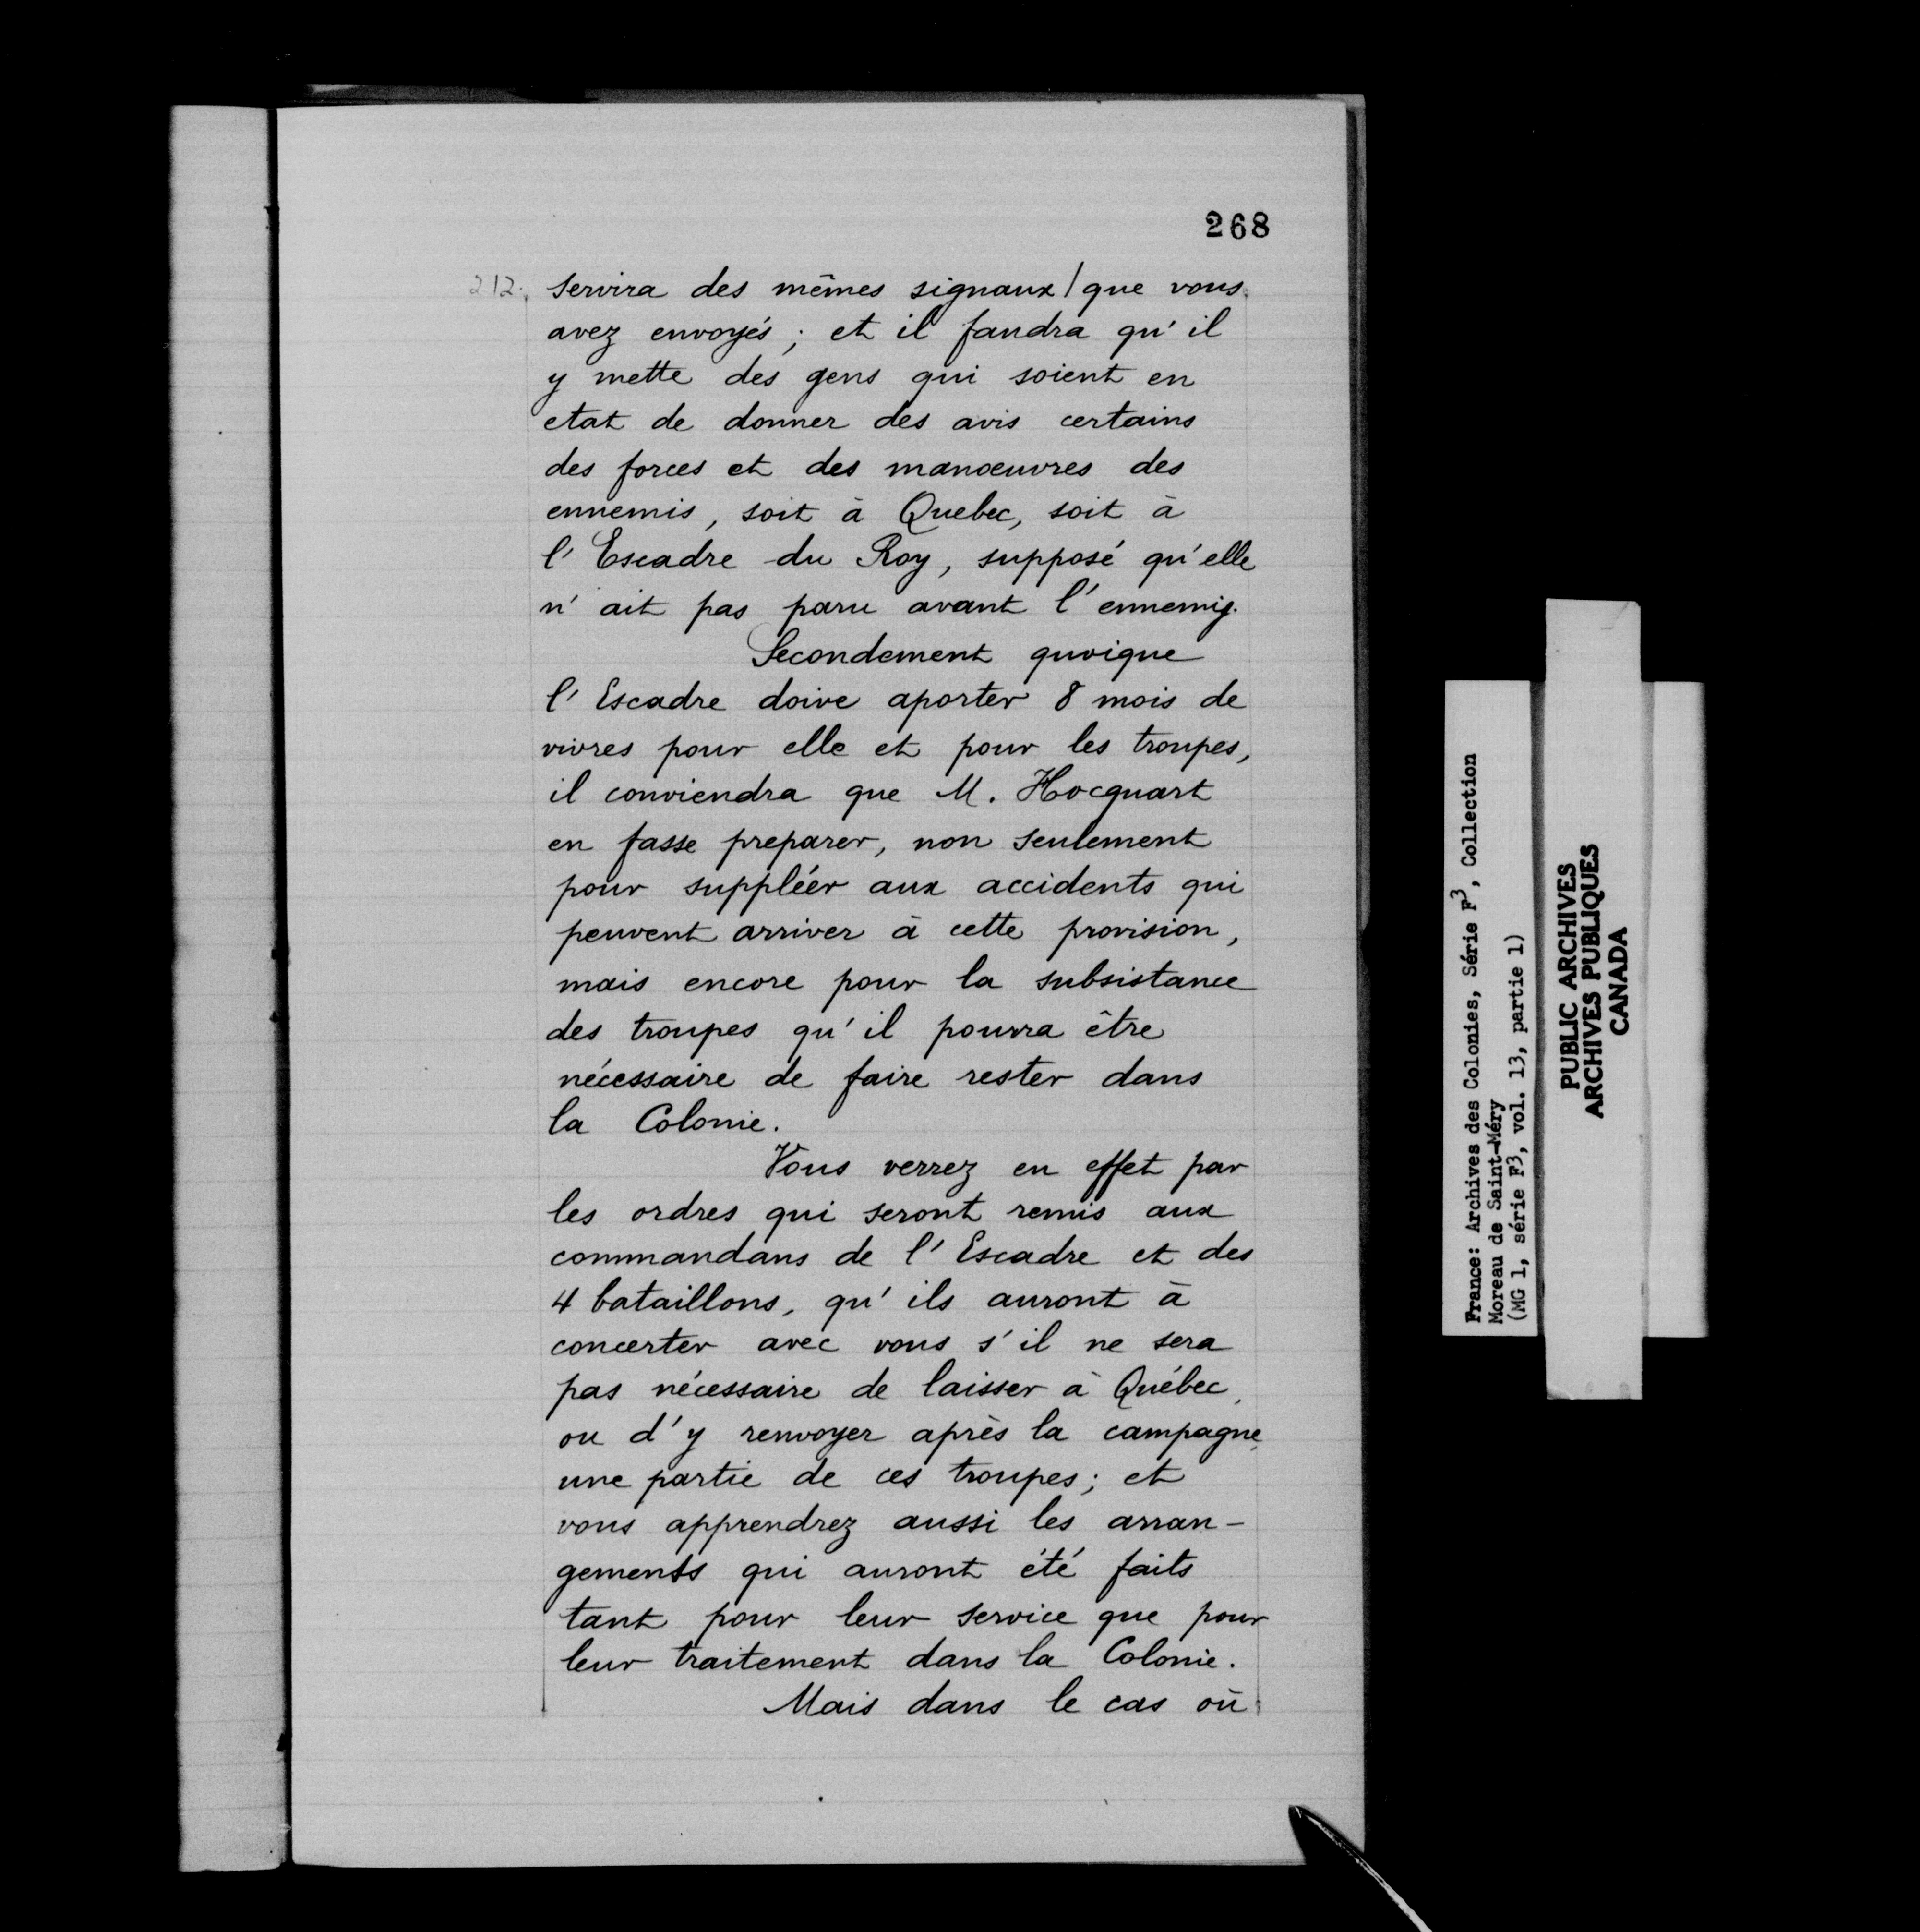 268
212. servira des mêmes signaux / que vous
avez envoyés ; et il faudra qu'il
y mette des gens qui soient en
etat de donner des avis certains
des forces et des manoeuvres des
ennemis, soit à Quebec, soit à
l'Escadre du Roy, supposé qu'elle
n'ait pas paru avant l'ennemy.
Secondement quoique
l'Escadre doive aporter 8 mois de
vivres pour elle et pour les troupes,
il conviendra que M. Hocquart
en fasse preparer, non seulement
pour suppléer aux accidents qui
peuvent arriver à cette provision,
mais encore pour la subsistance
des troupes qu'il pourra être
nécessaire de faire rester dans
la Colonie.
Vous verrez en effet par
les ordres qui seront remis aux
commandans de l'Escadre et des
4 bataillons, qu'ils auront à
concerter avec vous s'il ne sera
pas nécessaire de laisser à Québec,
ou d'y renvoyer après la campagne,
une partie de ces troupes ; et
vous apprendrez aussi les arran-
gements qui auront été faits
tant pour leur service que pour
leur traitement dans la Colonie.
Mais dans le cas où
France: Archives des Colonies, Série F3, Collection
Moreau de Saint-Méry
(MG 1, série F3, vol. 13, partie 1)
PUBLIC ARCHIVES
ARCHIVES PUBLIQUES
CANADA